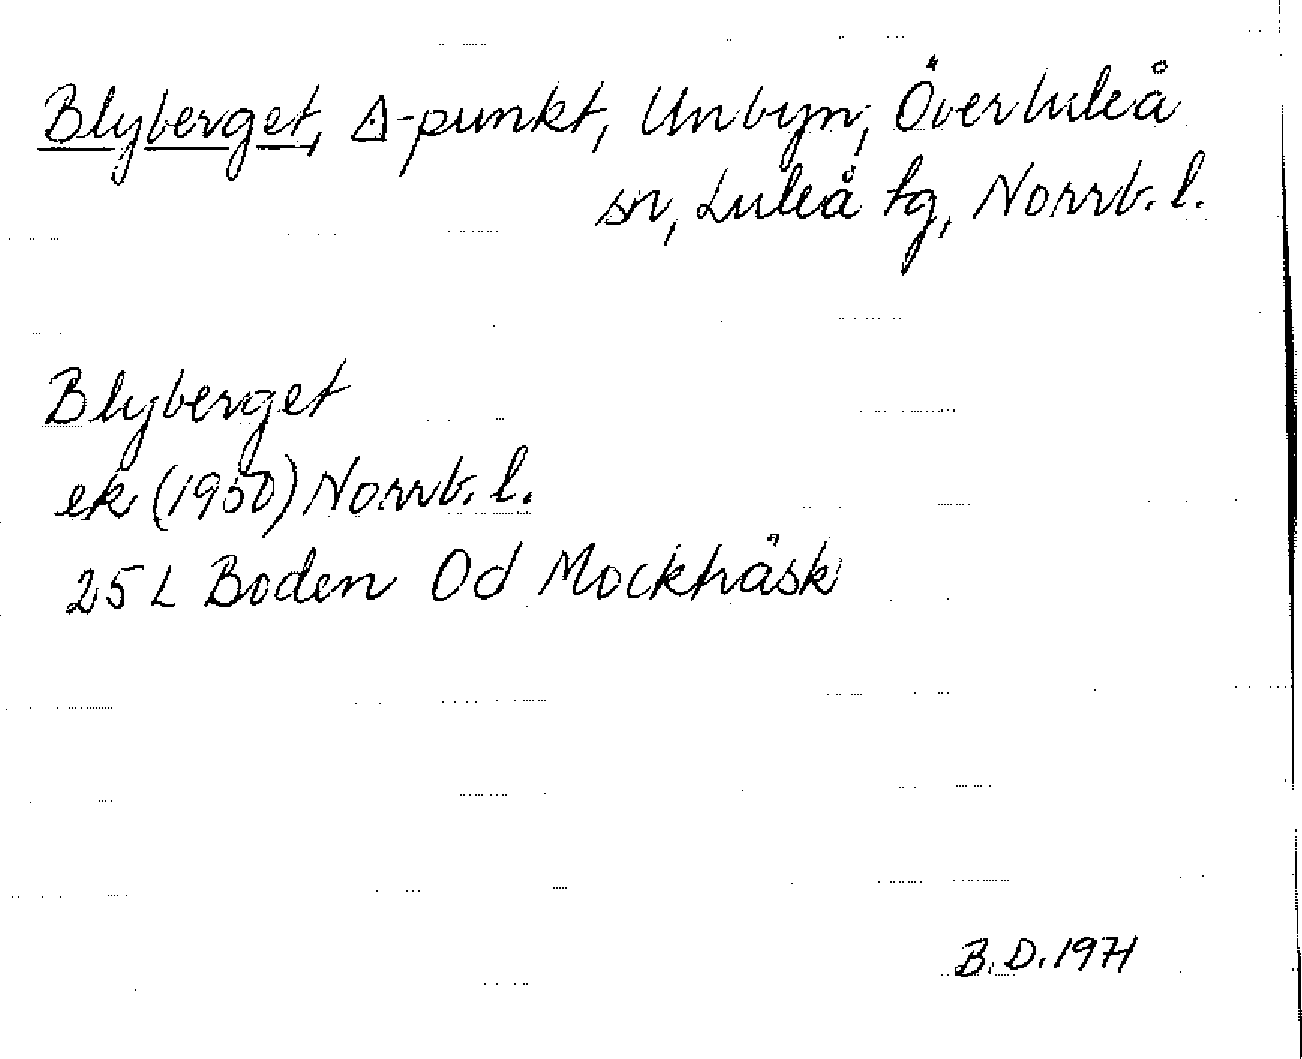 Blyberget, △-punkt, Unbyn, Överluleå
sn, Luleå tg, Norrb. l.
Blyberget
ek (1950) Norrb. l.
25 L Boden 0d Mockträsk
B.D. 1971